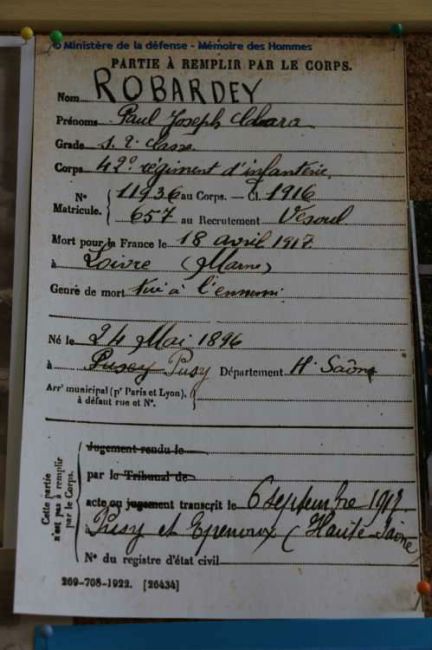 © Ministère de la défense - Mémoire des Hommes
PARTIE À REMPLIR PAR LE CORPS.
Nom ROBARDEY
Prénoms Paul Joseph
Grade s. 2e classe
Corps 42e régiment d'infanterie
N° 11936 au Corps. — Cl. 1916
Matricule. 657 au Recrutement Vesoul
Mort pour la France le 18 avril 1917
à Loivre (Marne)
Genre de mort tué à l'ennemi
Né le 24 Mai 1896
à Pusey Pusy Département Hte Saône
Arrt municipal (pr Paris et Lyon),
à défaut rue et N°.
Cette partie
n'est pas à remplir
par le Corps.
Jugement rendu le
par le Tribunal de
acte ou jugement transcrit le 6 septembre 1917
Pusy et Epenoux (Haute-Saône)
N° du registre d'état civil
269-708-1922. [26434]